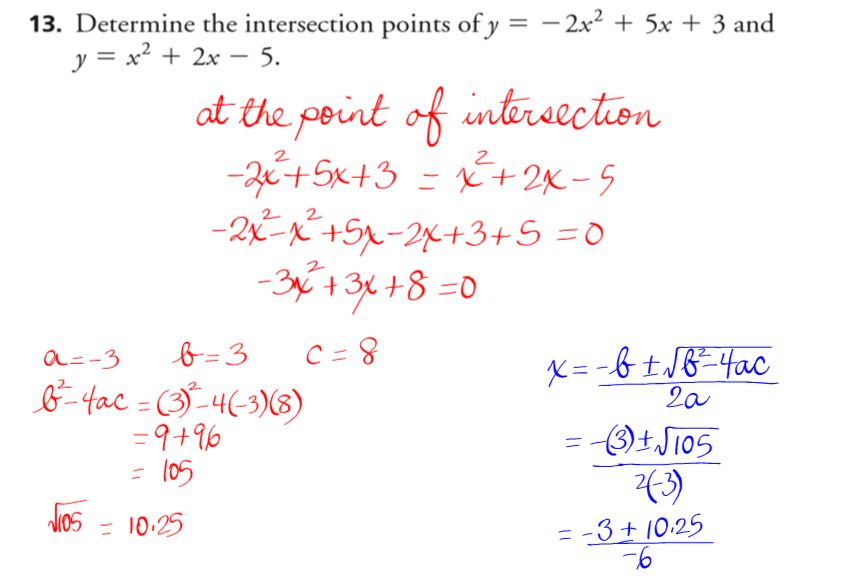 13. Determine the intersection points of y = −2x² + 5x + 3 and
y = x² + 2x − 5.
at the point of intersection
-2x²+5x+3 = x²+2x-5
-2x²-x²+5x-2x+3+5=0
-3x²+3x+8=0
a=-3 b=3 c=8
b²-4ac = (3)²-4(-3)(8)
=9+96
= 105
√105 = 10.25
x = -b ± √b²-4ac
2a
= -(3)±√105
2(-3)
= -3 ± 10.25
-6